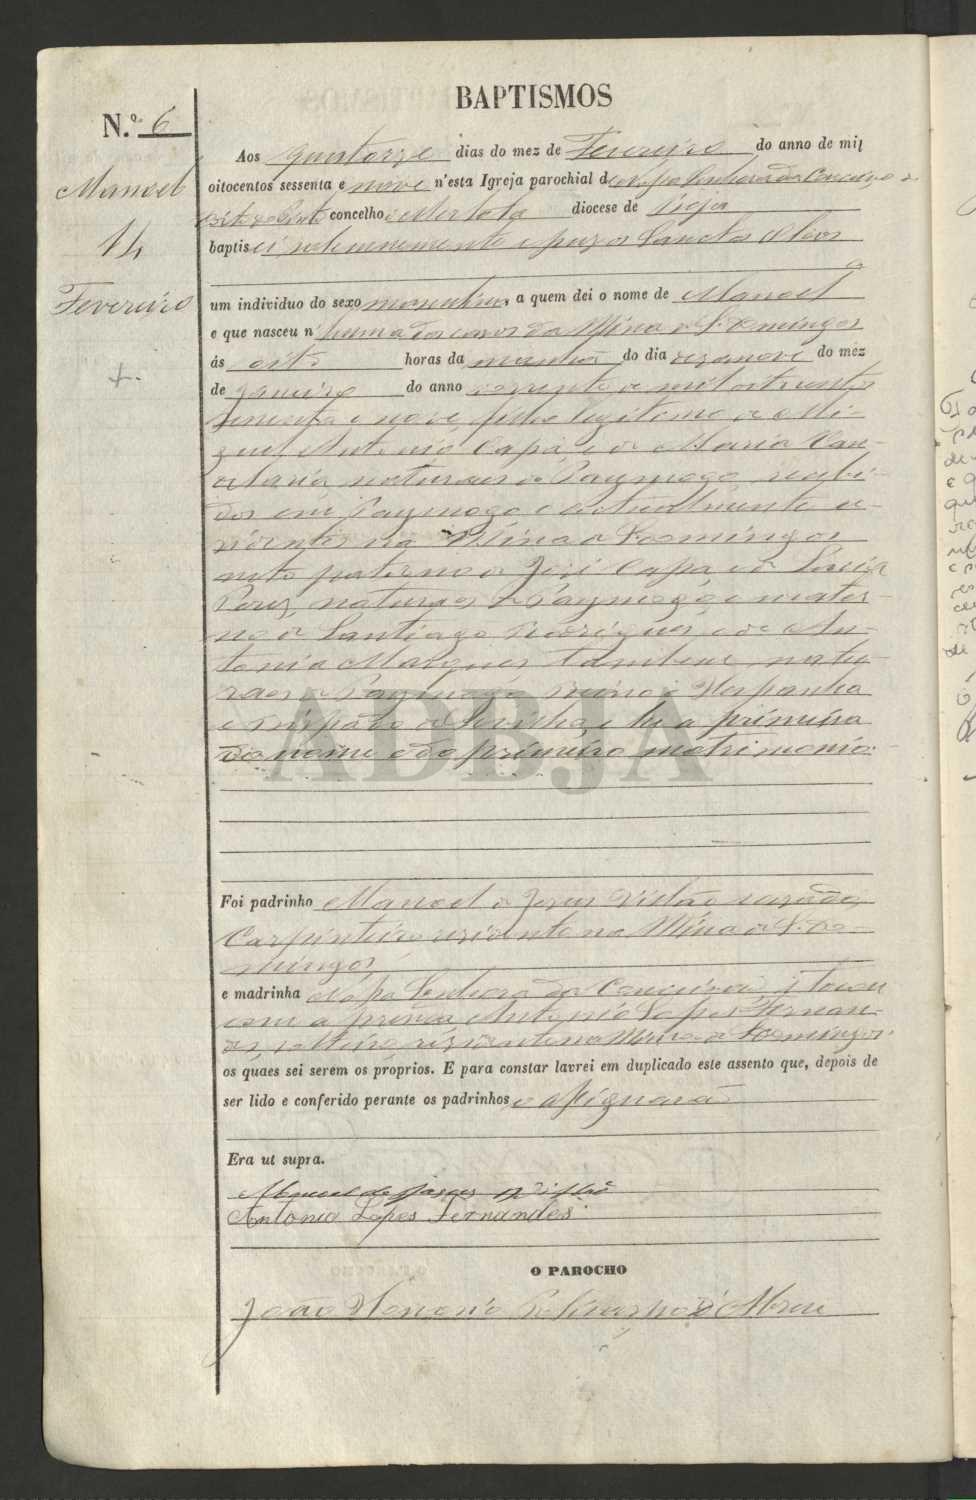 BAPTISMOS
N.º 6
Manoel
14
Fevereiro
Aos quatorze dias do mez de Fevereiro do anno de mil
oitocentos sessenta e nove n'esta Igreja parochial de Nossa Senhora da Conceição
concelho de Mertola diocese de Beja
baptisei solemnemente e puz os Sanctos Oleos
um individuo do sexo masculino, a quem dei o nome de Manoel
e que nasceu n'huma das casas da Mina de S. Domingos
ás oito horas da manhã do dia dezanove do mez
de Janeiro do anno corrente de mil oitocentos
sessenta e nove, filho legitimo de Mi-
guel Antonio Capa, e de Maria Can-
delaria naturaes de Paymogo, recebi-
dos em Paymogo e actualmente re-
sidentes na Mina de S. Domingos
neto paterno de José Capa e de
naturaes de Paymogo, e mater-
no de Santiago Rodrigues, e de An-
tonia Marques tambem natu-
raes de Paymogo Reino de Hespanha
e Bispado de Sevilha, e he a primeira
do nome e do primeiro matrimonio.
Foi padrinho Manoel de Jesus casado,
Carpinteiro residente na Mina de S. Do-
mingos,
e madrinha Nossa Senhora da Conceição, e tocou
com a prenda Antonio Lopes Fernan-
des, solteiro, residente na Mina de S. Domingos
os quaes sei serem os próprios. E para constar lavrei em duplicado este assento que, depois de
ser lido e conferido perante os padrinhos, e assignarão
Era ut supra.
Manoel de Jesus
Antonio Lopes Fernandes
O PAROCHO
João d'Abreu
ADBJA